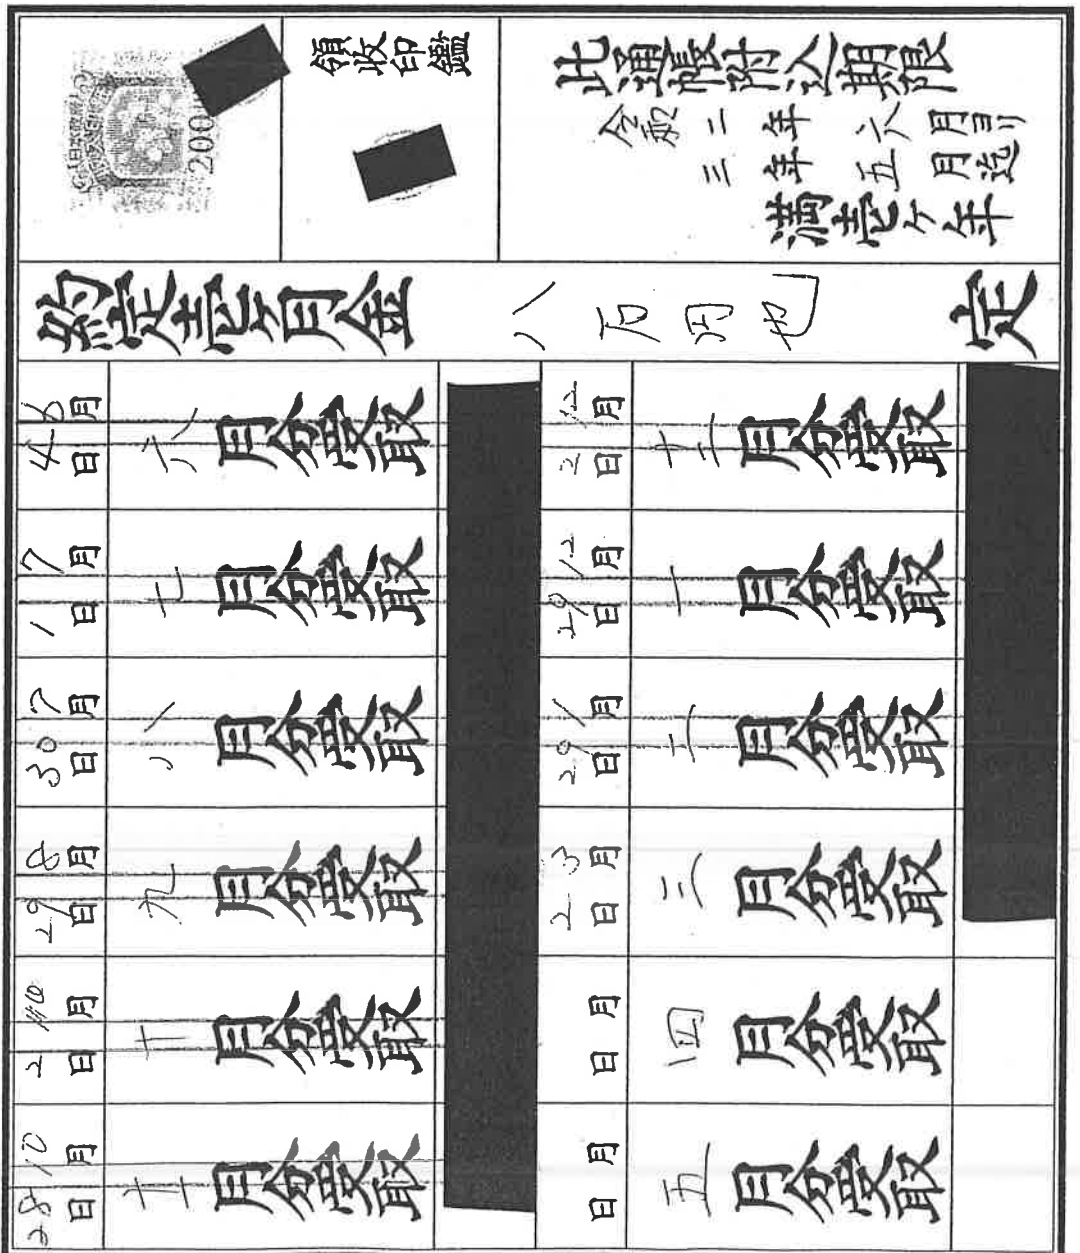 此通帳附込期限
令和二年六月ヨリ
三年五月迄
満壱ケ年
領收印鑑
200
約定壱ケ月金 八万円也 定
6月4日 六月分受取
7月1日 七月分受取
7月30日 八月分受取
8月29日 九月分受取
10月2日 十月分受取
10月28日 十一月分受取
12月2日 十二月分受取
12月29日 一月分受取
1月29日 二月分受取
3月2日 三月分受取
月 日 四月分受取
月 日 五月分受取